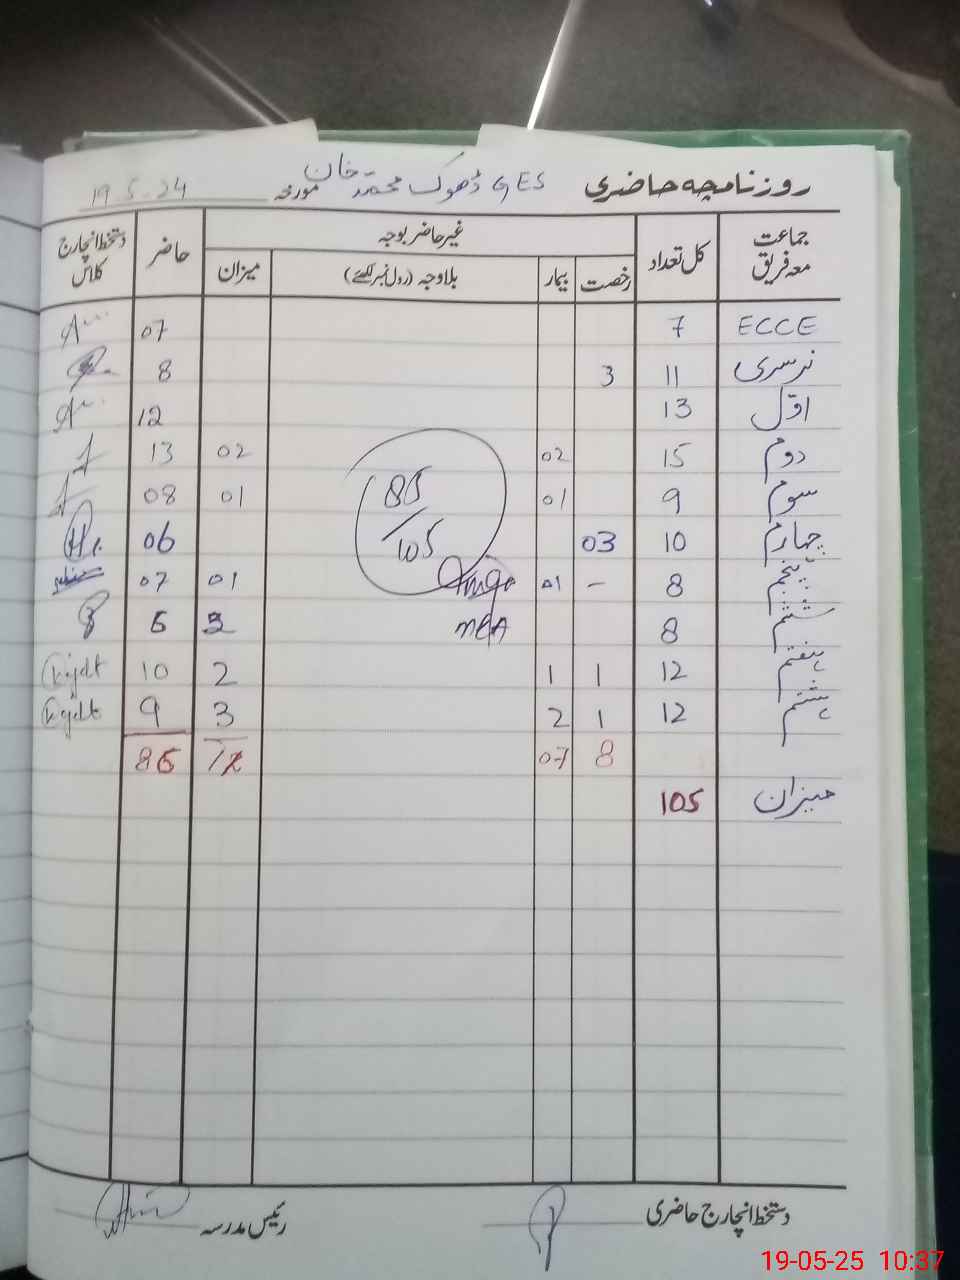 روزنامچہ حاضری GES ڈھوک محمد خان مورخہ 19-5-24
جماعت معہ فریق کل تعداد غیر حاضر بوجہ حاضر دستخط انچارج کلاس
رخصت بیمار بلاوجہ (رول نمبر لکھئے) میزان
ECCE 7 07
نرسری 11 3 8
اوّل 13 12
دوم 15 02 02 13
سوم 9 01 01 08
چہارم 10 03 06
پنجم 8 - 01 01 07
ششم 8 3 5
ہفتم 12 1 1 2 10
ہشتم 12 1 2 3 9
8 07 12 85
میزان 105
85/105
MEA
دستخط انچارج حاضری رئیس مدرسہ
19-05-25 10:37